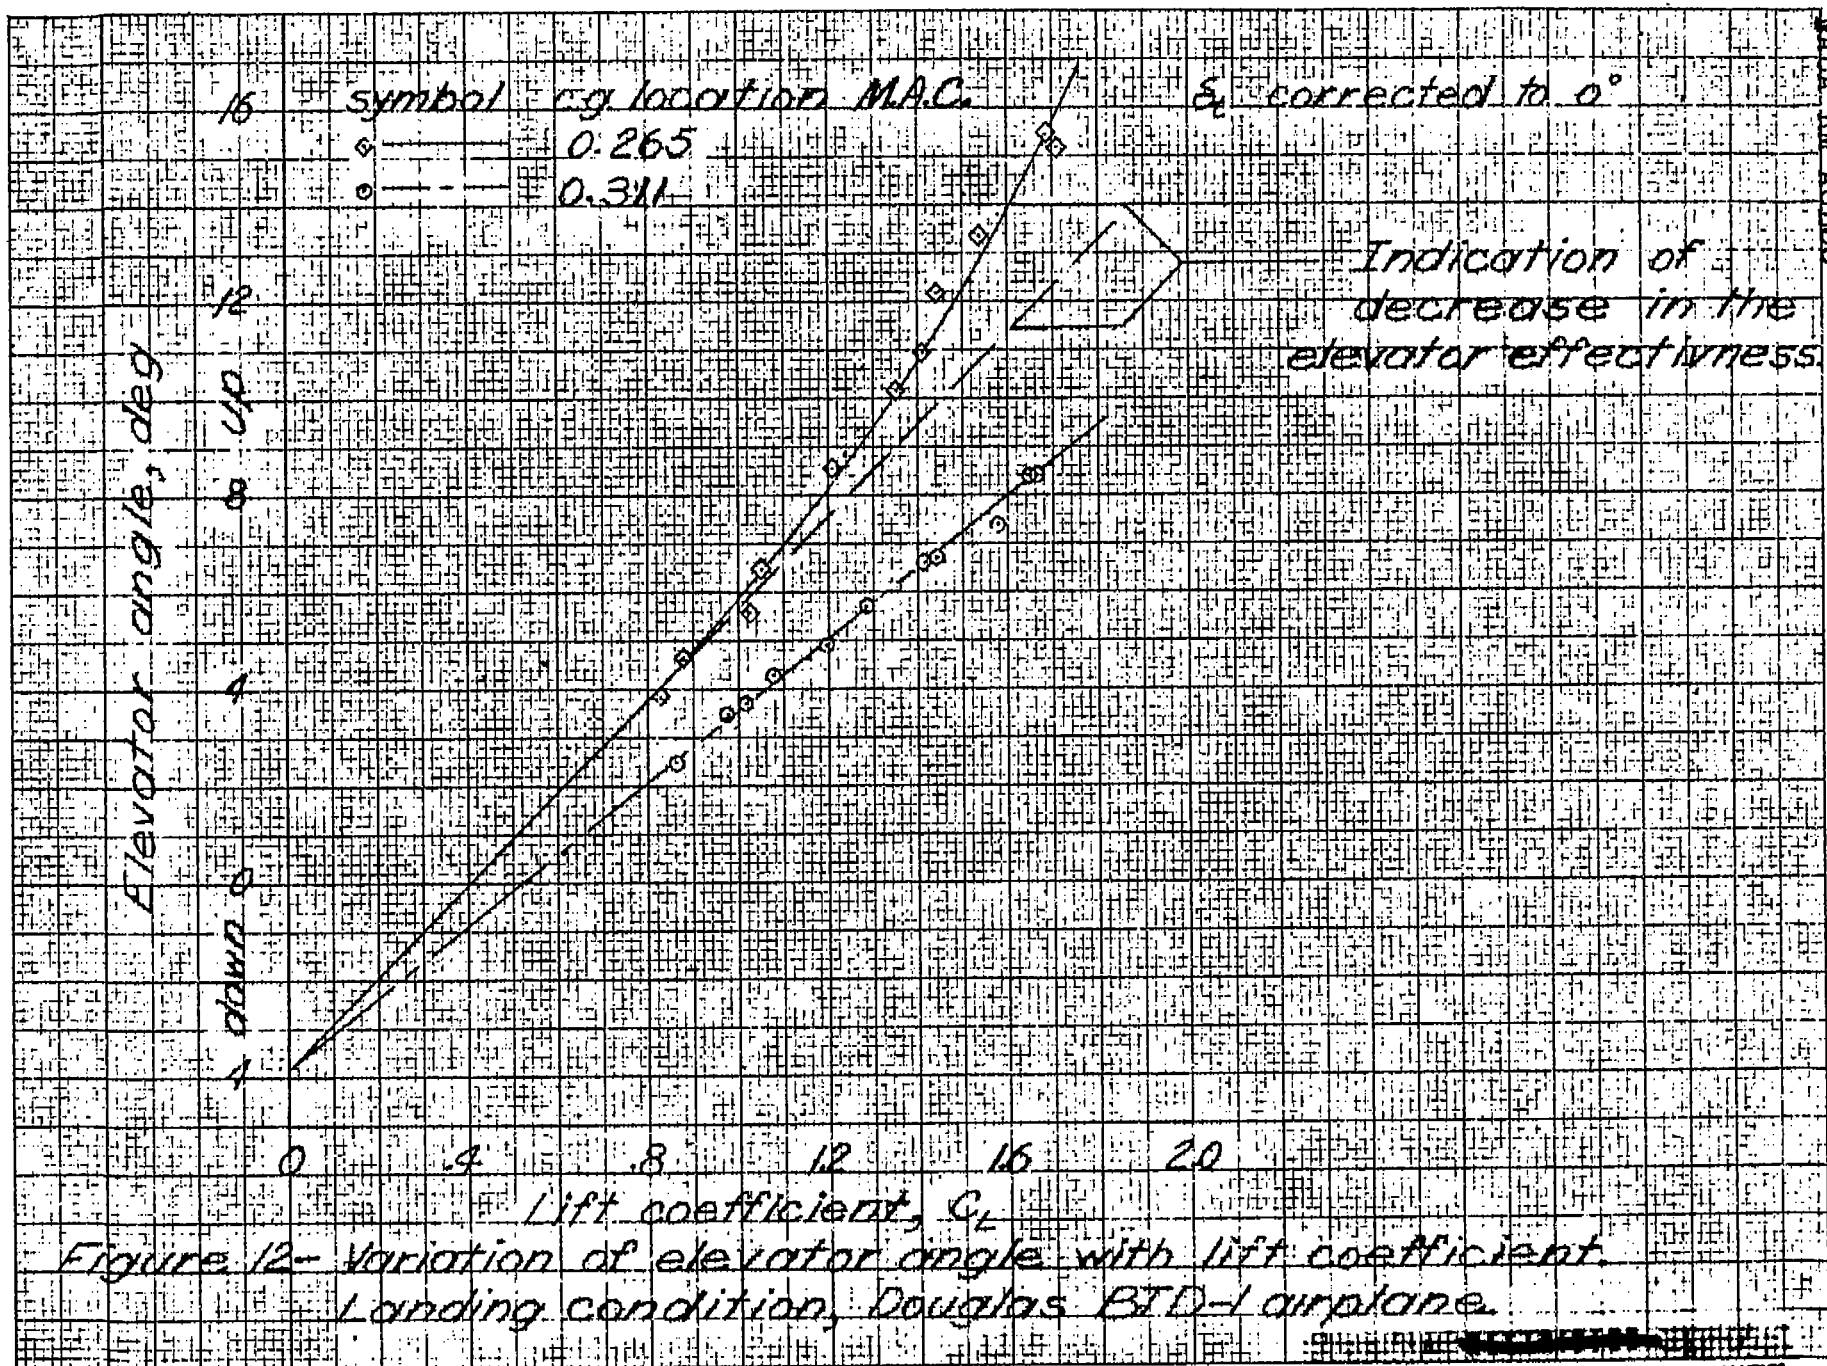 symbol c.g. location M.A.C.
0.265
0.311
δt corrected to 0°
Indication of
decrease in the
elevator effectivness.
Elevator angle, deg
down up
16
12
8
4
0
4
0 .4 .8 1.2 1.6 2.0
Lift coefficient, CL
Figure 12- Variation of elevator angle with lift coefficient.
Landing condition, Douglas BTD-1 airplane.